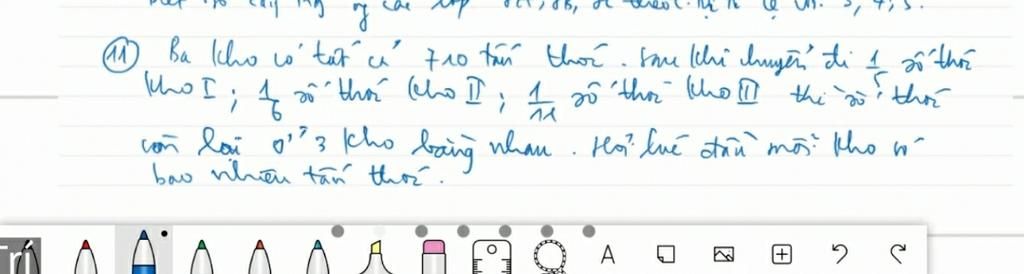 8A, 8B, 8C theo tỉ lệ là: 3, 4, 5.
⑪ Ba kho có tất cả 710 tấn thóc. Sau khi chuyển đi 1/5 số thóc
kho I; 1/6 số thóc kho II; 1/11 số thóc kho III thì số thóc
còn lại ở 3 kho bằng nhau. Hỏi lúc đầu mỗi kho có
bao nhiêu tấn thóc.
Trí
A